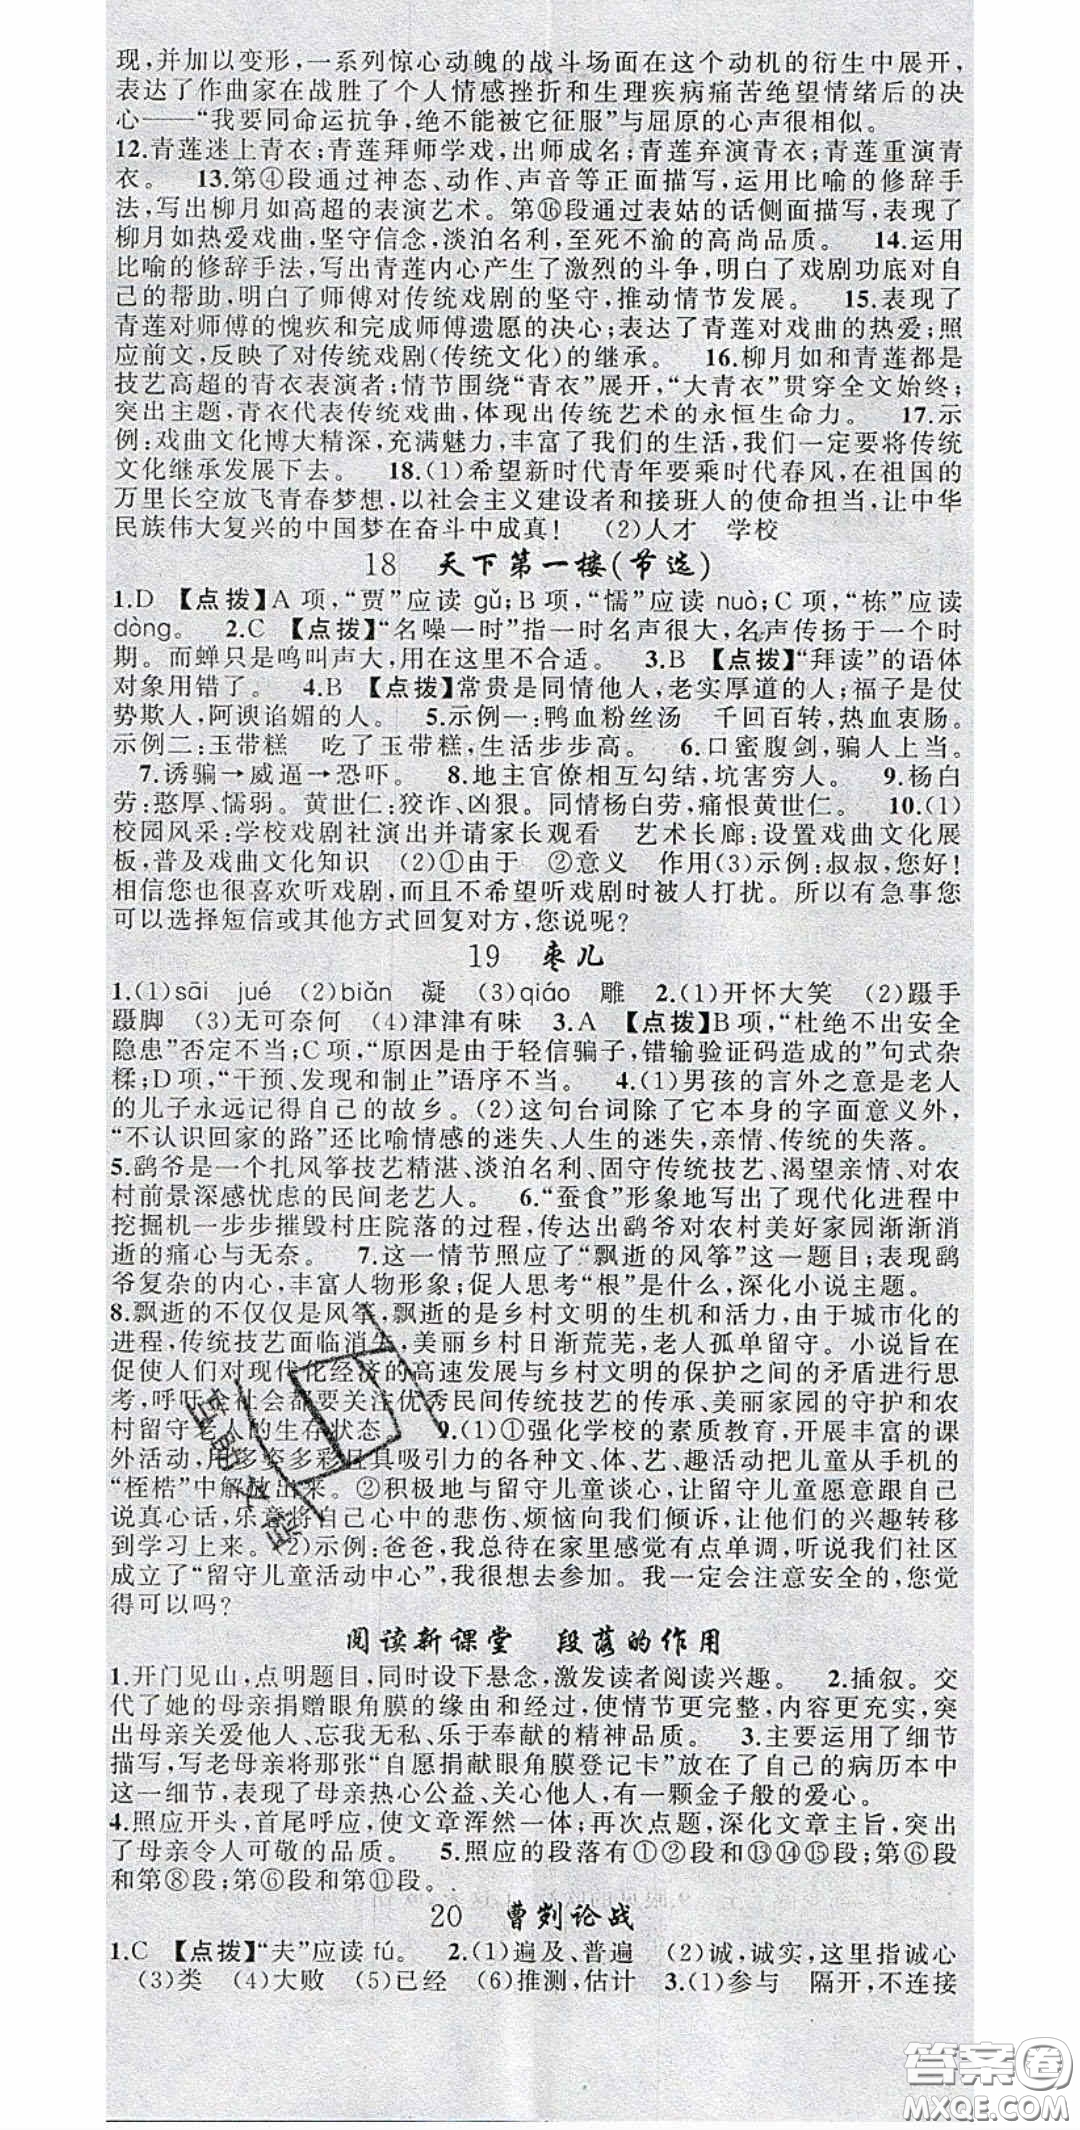 现,并加以变形,一系列惊心动魄的战斗场面在这个动机的衍生中展开,
表达了作曲家在战胜了个人情感挫折和生理疾病痛苦绝望情绪后的决
心——“我要同命运抗争,绝不能被它征服”与屈原的心声很相似。
12.青莲迷上青衣;青莲拜师学戏,出师成名;青莲弃演青衣;青莲重演青
衣。 13.第④段通过神态、动作、声音等正面描写,运用比喻的修辞手
法,写出柳月如高超的表演艺术。第⑯段通过表姑的话侧面描写,表现了
柳月如热爱戏曲,坚守信念,淡泊名利,至死不渝的高尚品质。 14.运用
比喻的修辞手法,写出青莲内心产生了激烈的斗争,明白了戏剧功底对自
己的帮助,明白了师傅对传统戏剧的坚守,推动情节发展。 15.表现了
青莲对师傅的愧疚和完成师傅遗愿的决心;表达了青莲对戏曲的热爱;照
应前文,反映了对传统戏剧(传统文化)的继承。 16.柳月如和青莲都是
技艺高超的青衣表演者;情节围绕“青衣”展开,“大青衣”贯穿全文始终;
突出主题,青衣代表传统戏曲,体现出传统艺术的永恒生命力。 17.示
例:戏曲文化博大精深,充满魅力,丰富了我们的生活,我们一定要将传统
文化继承发展下去。 18.(1)希望新时代青年要乘时代春风,在祖国的
万里长空放飞青春梦想,以社会主义建设者和接班人的使命担当,让中华
民族伟大复兴的中国梦在奋斗中成真! (2)人才 学校
18 天下第一楼(节选)
1.D 【点拨】A项,“贾”应读gǔ;B项,“懦”应读nuò;C项,“栋”应读
dòng。 2.C 【点拨】“名噪一时”指一时名声很大,名声传扬于一个时
期。而蝉只是鸣叫声大,用在这里不合适。 3.B 【点拨】“拜读”的语体
对象用错了。 4.B 【点拨】常贵是同情他人,老实厚道的人;福子是仗
势欺人,阿谀谄媚的人。 5.示例一:鸭血粉丝汤 千回百转,热血衷肠。
示例二:玉带糕 吃了玉带糕,生活步步高。 6.口蜜腹剑,骗人上当。
7.诱骗→威逼→恐吓。 8.地主官僚相互勾结,坑害穷人。 9.杨白
劳:憨厚、懦弱。黄世仁:狡诈、凶狠。同情杨白劳,痛恨黄世仁。 10.(1)
校园风采:学校戏剧社演出并请家长观看 艺术长廊:设置戏曲文化展
板,普及戏曲文化知识 (2)①由于 ②意义 作用(3)示例:叔叔,您好!
相信您也很喜欢听戏剧,而且不希望听戏剧时被人打扰。所以有急事您
可以选择短信或其他方式回复对方,您说呢?
19 枣儿
1.(1)sāi jué (2)biǎn 凝 (3)qiáo 雕 2.(1)开怀大笑 (2)蹑手
蹑脚 (3)无可奈何 (4)津津有味 3.A 【点拨】B项,“杜绝不出安全
隐患”否定不当;C项,“原因是由于轻信骗子,错输验证码造成的”句式杂
糅;D项,“干预、发现和制止”语序不当。 4.(1)男孩的言外之意是老人
的儿子永远记得自己的故乡。(2)这句台词除了它本身的字面意义外,
“不认识回家的路”还比喻情感的迷失、人生的迷失,亲情、传统的失落。
5.鹞爷是一个扎风筝技艺精湛、淡泊名利、固守传统技艺、渴望亲情、对农
村前景深感忧虑的民间老艺人。 6.“蚕食”形象地写出了现代化进程中
挖掘机一步步摧毁村庄院落的过程,传达出鹞爷对农村美好家园渐渐消
逝的痛心与无奈。 7.这一情节照应了“飘逝的风筝”这一题目;表现鹞
爷复杂的内心,丰富人物形象;促人思考“根”是什么,深化小说主题。
8.飘逝的不仅仅是风筝,飘逝的是乡村文明的生机和活力,由于城市化的
进程,传统技艺面临消失,美丽乡村日渐荒芜,老人孤单留守。小说旨在
促使人们对现代化经济的高速发展与乡村文明的保护之间的矛盾进行思
考,呼吁全社会都要关注优秀民间传统技艺的传承、美丽家园的守护和农
村留守老人的生存状态。 9.(1)①强化学校的素质教育,开展丰富的课
外活动,用多姿多彩且具吸引力的各种文、体、艺、趣活动把儿童从手机的
“桎梏”中解放出来。②积极地与留守儿童谈心,让留守儿童愿意跟自己
说真心话,乐意将自己心中的悲伤、烦恼向我们倾诉,让他们的兴趣转移
到学习上来。(2)示例:爸爸,我总待在家里感觉有点单调,听说我们社区
成立了“留守儿童活动中心”,我很想去参加。我一定会注意安全的,您觉
得可以吗?
阅读新课堂 段落的作用
1.开门见山,点明题目,同时设下悬念,激发读者阅读兴趣。 2.插叙。交
代了她的母亲捐赠眼角膜的缘由和经过,使情节更完整,内容更充实,突
出母亲关爱他人、忘我无私、乐于奉献的精神品质。 3.主要运用了细节
描写,写老母亲将那张“自愿捐献眼角膜登记卡”放在了自己的病历本中
这一细节,表现了母亲热心公益、关心他人,有一颗金子般的爱心。
4.照应开头,首尾呼应,使文章浑然一体;再次点题,深化文章主旨,突出
了母亲令人可敬的品质。 5.照应的段落有①②段和⑬⑭⑮段;第⑥段
和第⑧段;第⑥段和第⑪段。
20 曹刿论战
1.C 【点拨】“夫”应读fú。 2.(1)遍及、普遍 (2)诚,诚实,这里指诚心
(3)类 (4)大败 (5)已经 (6)推测,估计 3.(1)参与 隔开,不连接
答案圈
MXQE.COM